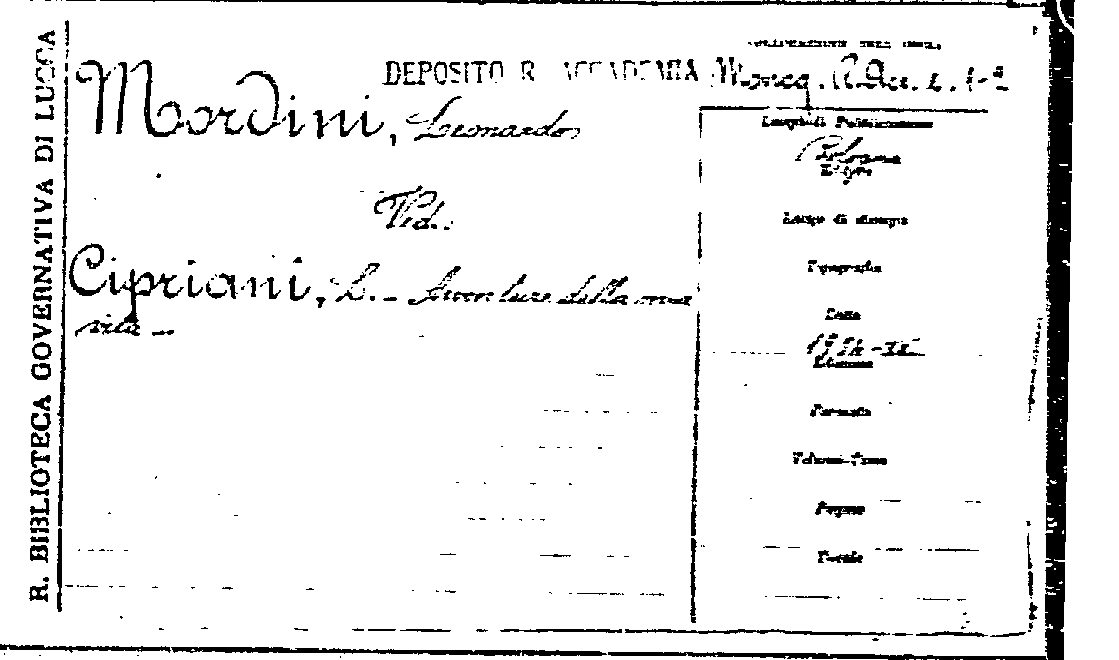 R. BIBLIOTECA GOVERNATIVA DI LUCCA
DEPOSITO R. ACCADEMIA
Mordini, Leonardo
Ved.:
Cipriani, L. - Avventure della mia
vita -
Luogo di Pubblicazione
Bologna
Luogo di stampa
Tipografia
Data
Formato
Volumi-Tomi
Pagine